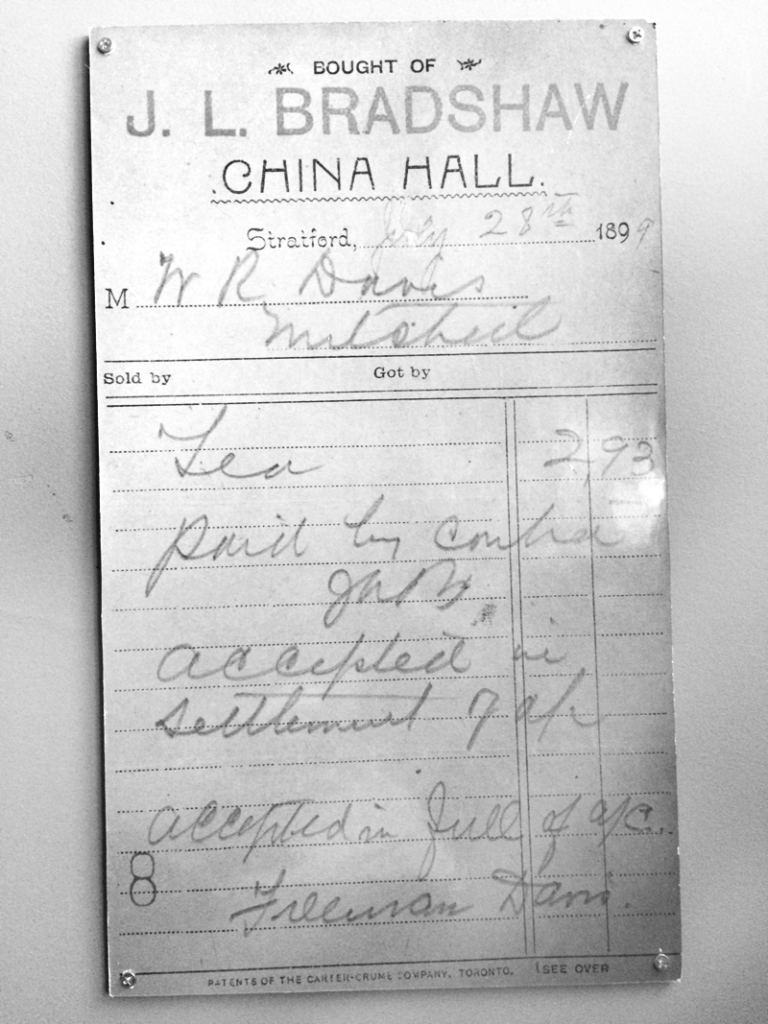 BOUGHT OF
J. L. BRADSHAW
CHINA HALL.
Stratford, July 28th 1899
M W R Davis
Mitchell
Sold by Got by
Tea 2 93
paid by contra
accepted in
settlement of a/c
accepted in full of a/c.
8 Freeman Davis.
PATENTS OF THE CARTER-CRUME COMPANY, TORONTO. (SEE OVER